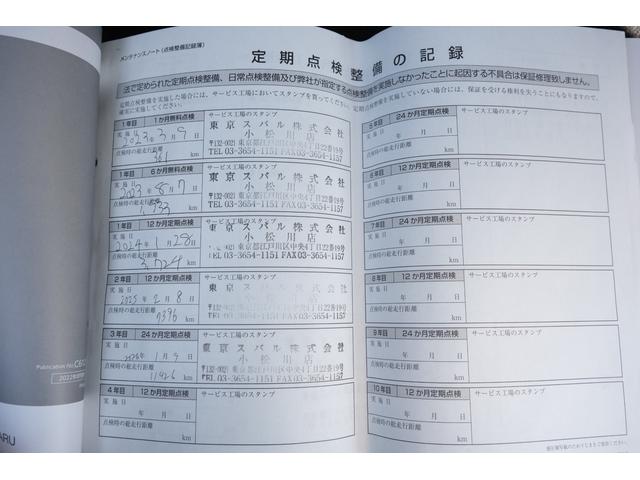 メンテナンスノート (点検整備記録簿)
定期点検整備の記録
法で定められた定期点検整備、日常点検整備及び弊社が指定する点検整備を実施しなかったことに起因する不具合は保証修理致しません。
定期点検整備を実施した場合には、サービス工場においてスタンプを貰ってください。定期点検整備を実施していない場合には、保証を受ける権利を失うことにもなりますので、
確実に実施してください。
1年目 1か月無料点検 サービス工場のスタンプ
実施日 2023年3月9日
点検時の総走行距離
361 km
東京スバル株式会社
小松川店
〒132-0021 東京都江戸川区中央4丁目19号
TEL 03-3654-1151 FAX 03-3654-1157
1年目 6か月無料点検 サービス工場のスタンプ
実施日 2023年8月7日
点検時の総走行距離
1,933 km
東京スバル株式会社
小松川店
〒132-0021 東京都江戸川区中央4丁目19号
TEL 03-3654-1151 FAX 03-3654-1157
1年目 12か月定期点検 サービス工場のスタンプ
実施日 2024年1月28日
点検時の総走行距離
3,724 km
東京スバル株式会社
小松川店
〒132-0021 東京都江戸川区中央4丁目19号
TEL 03-3654-1151 FAX 03-3654-1157
2年目 12か月定期点検 サービス工場のスタンプ
実施日 2025年2月8日
点検時の総走行距離
7396 km
東京スバル株式会社
小松川店
〒132-0021 東京都江戸川区中央4丁目19号
TEL 03-3654-1151 FAX 03-3654-1157
3年目 24か月定期点検 サービス工場のスタンプ
実施日 2026年1月9日
点検時の総走行距離
11426 km
東京スバル株式会社
小松川店
〒132-0021 東京都江戸川区中央4丁目19号
TEL 03-3654-1151 FAX 03-3654-1157
4年目 12か月定期点検 サービス工場のスタンプ
実施日 年 月 日
点検時の総走行距離
km
5年目 24か月定期点検 サービス工場のスタンプ
実施日 年 月 日
点検時の総走行距離
km
6年目 12か月定期点検 サービス工場のスタンプ
実施日 年 月 日
点検時の総走行距離
km
7年目 24か月定期点検 サービス工場のスタンプ
実施日 年 月 日
点検時の総走行距離
km
8年目 12か月定期点検 サービス工場のスタンプ
実施日 年 月 日
点検時の総走行距離
km
9年目 24か月定期点検 サービス工場のスタンプ
実施日 年 月 日
点検時の総走行距離
km
10年目 12か月定期点検 サービス工場のスタンプ
実施日 年 月 日
点検時の総走行距離
km
Publication No.
ARU